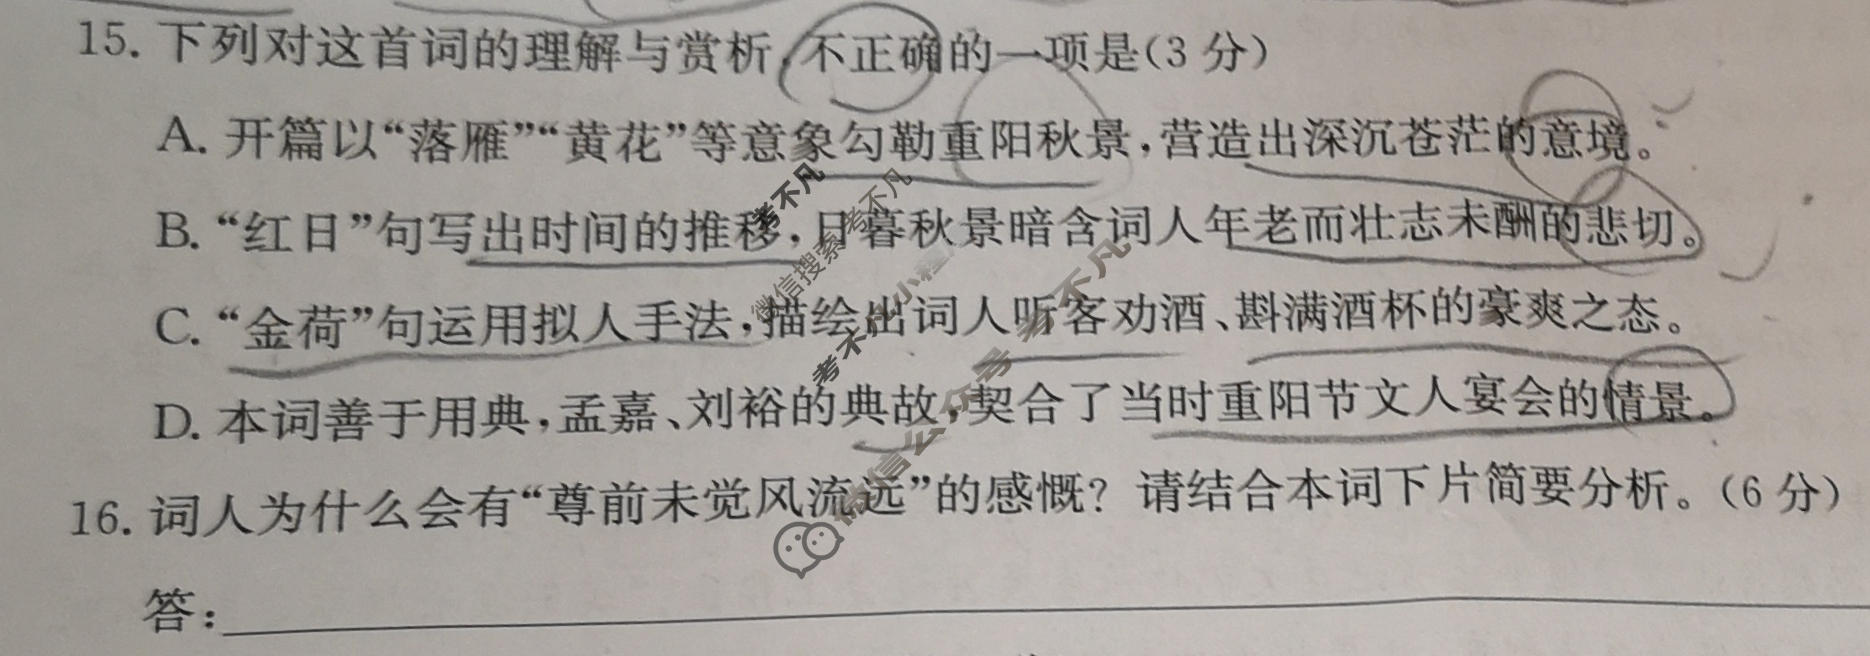 15. 下列对这首词的理解与赏析,不正确的一项是(3 分)
A. 开篇以“落雁”“黄花”等意象勾勒重阳秋景,营造出深沉苍茫的意境。
B. “红日”句写出时间的推移,日暮秋景暗含词人年老而壮志未酬的悲切。
C. “金荷”句运用拟人手法,描绘出词人听客劝酒、斟满酒杯的豪爽之态。
D. 本词善于用典,孟嘉、刘裕的典故,契合了当时重阳节文人宴会的情景。
16. 词人为什么会有“尊前未觉风流远”的感慨? 请结合本词下片简要分析。(6 分)
答:
考不凡
微信搜索 考不凡
考不凡 小程
微信公众号 考不凡